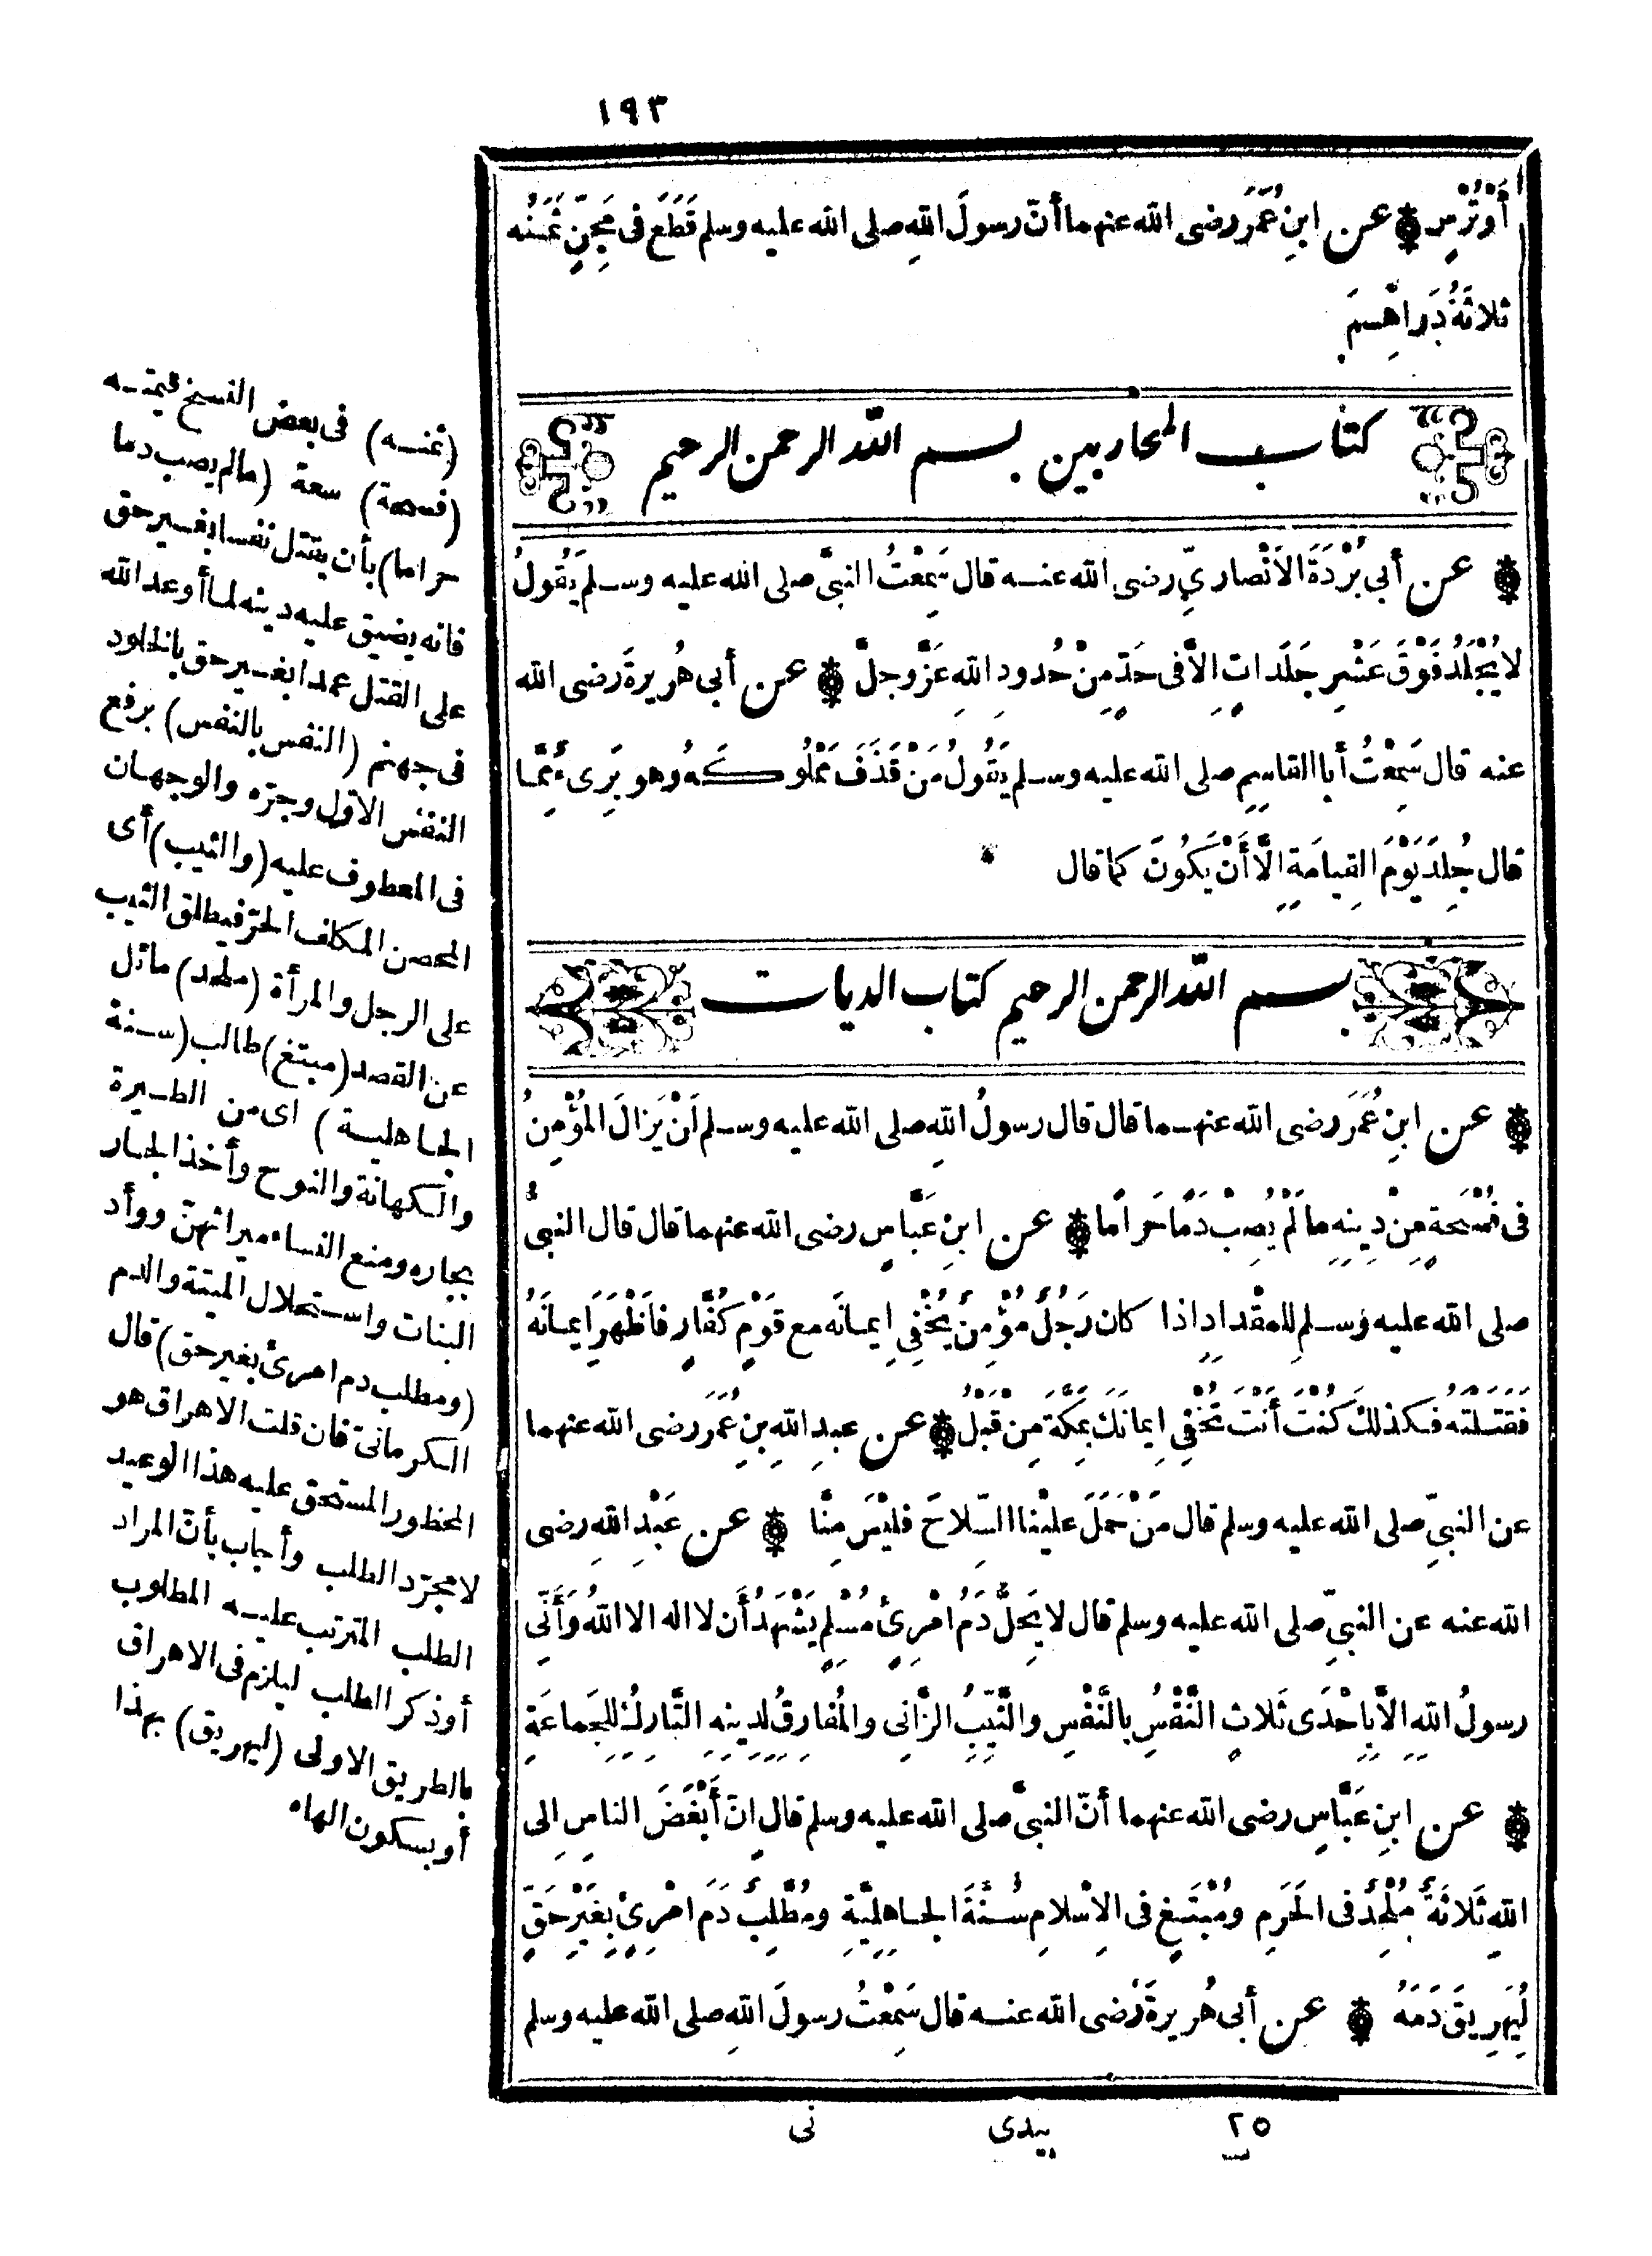 ١٩٣
أَوْتُرْسٍ عن ابنِ عُمَرَ رضى الله عنهما أنّ رسولَ اللهِ صلى الله عليه وسلم قَطَعَ فى مِجَنٍّ ثَمَنُه
ثلاثَةُ دَرَاهِمَ
كتاب المحاربين بسم الله الرحمن الرحيم
عن أبى بُرْدَةَ الاَنْصارىِّ رضى الله عنه قال سَمِعْتُ النبىَّ صلى الله عليه وسلم يَقُولُ
لا يُجْلَدُ فَوْقَ عَشْرِ جَلَداتٍ الاَّ فى حَدٍّ مِنْ حُدودِ اللهِ عَزَّ وجلَّ عن أبى هُريرةَ رضى الله
عنه قال سَمِعْتُ أبا القاسِمِ صلى الله عليه وسلم يَقُولُ مَنْ قَذَفَ مَمْلُوكَهُ وهو بَرِىءٌ مِمَّا
قال جُلِدَ يَوْمَ القِيامَةِ الَّا أَنْ يَكُونَ كما قال
بسم الله الرحمن الرحيم كتاب الديات
عن ابنِ عُمَرَ رضى الله عنهما قال قال رسولُ اللهِ صلى الله عليه وسلم لَنْ يَزالَ المُؤْمِنُ
فى فُسْحَةٍ مِنْ دِينِهِ ما لَمْ يُصِبْ دَمًا حَرامًا عن ابنِ عَبَّاسٍ رضى الله عنهما قال قال النبىُّ
صلى الله عليه وسلم لِلمِقْدادِ اذا كان رَجُلٌ مُؤْمِنٌ يُخْفِى اِيمانَه مع قَوْمٍ كُفَّارٍ فأَظْهَرَ اِيمانَهُ
فَقَتَلْتَهُ فكذلكَ كُنْتَ أَنْتَ تُخْفِى اِيمانَكَ بِمَكَّةَ مِنْ قَبْلُ عن عبدِ اللهِ بنِ عُمَرَ رضى الله عنهما
عن النبىِّ صلى الله عليه وسلم قال مَنْ حَمَلَ علَيْنا السِّلاحَ فلَيْسَ مِنَّا عن عَبْدِ اللهِ رضى
الله عنه عن النبىِّ صلى الله عليه وسلم قال لا يَحِلُّ دَمُ امْرِئٍ مُسْلِمٍ يَشْهَدُ أَن لا اله الا اللهُ وَأَنِّى
رسولُ اللهِ الاَّ بِاِحْدَى ثَلاثٍ النَّفْسُ بِالنَّفْسِ والثَّيِّبُ الزَّانِى والمُفارِقُ لِدِينِهِ التَّارِكُ لِلجَماعَةِ
عن ابنِ عَبَّاسٍ رضى الله عنهما أنّ النبىَّ صلى الله عليه وسلم قال اِنّ أَبْغَضَ الناسِ اِلى
اللهِ ثَلاثَةٌ مُلْحِدٌ فى الحَرَمِ ومُبْتَغٍ فى الاِسْلامِ سُنَّةَ الجاهِلِيَّةِ ومُطَّلِبٌ دَمَ امْرِئٍ بِغَيْرِ حَقٍّ
لِيُهَرِيقَ دَمَهُ عن أبى هُريرةَ رضى الله عنه قال سَمِعْتُ رسولَ اللهِ صلى الله عليه وسلم
(ثمنه) فى بعض النسخ قيمته
(فسحة) سعة (مالم يصب دما
حراما) بأن يقتل نفسا بغير حق
فانه يضيق عليه دينه لما أوعد الله
على القتل عمدا بغير حق بالخلود
فى جهنم (النفس بالنفس) برفع
النفس الاوّل وجرّه والوجهان
فى المعطوف عليه (والثيب) أى
المحصن المكلف الحرّ فيطلق الثيب
على الرجل والمرأة (ملحد) مائل
عن القصد (مبتغ) طالب (سنة
الجاهلية) اى من الطيرة
والكهانة والنوح وأخذ الجار
بجاره ومنع النساء ميراثهنّ ووأد
البنات واستحلال الميتة والدم
(ومطلب دم امرئ بغير حق) قال
الكرمانىّ فان قلت الاهراق هو
المحظور المستحق عليه هذا الوعيد
لا مجرّد الطلب وأجاب بأنّ المراد
الطلب المترتب عليه المطلوب
أو ذكر الطلب ليلزم فى الاهراق
بالطريق الاولى (ليهريق) بهذا
أو بسكون الهاء
٢٥ زبيدى نى